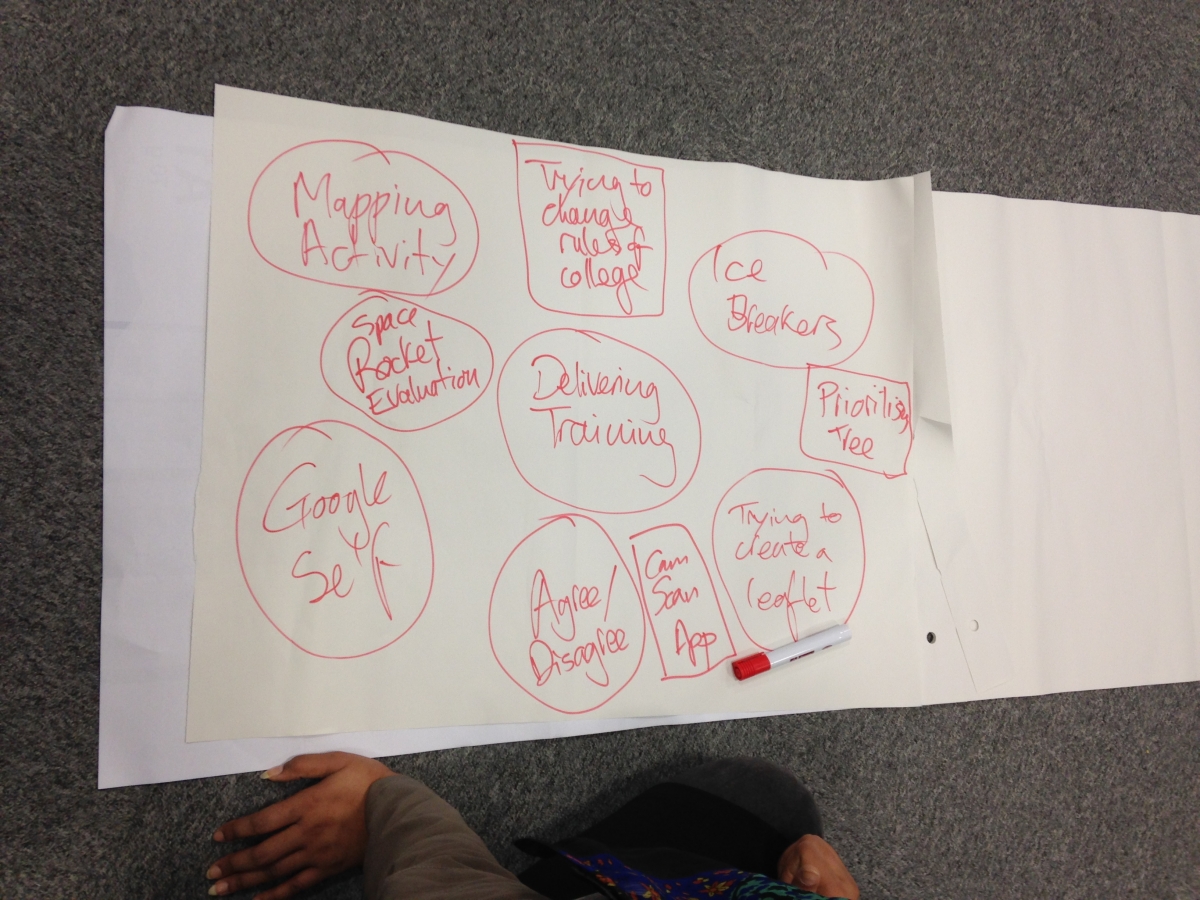 Mapping
Activity
Trying to
change
rules of
college
Ice
Breakers
Space
Rocket
Evaluation
Delivering
Training
Prioritising
Tree
Google
Self
Agree/
Disagree
Cam
Scan
App
Trying to
create a
leaflet